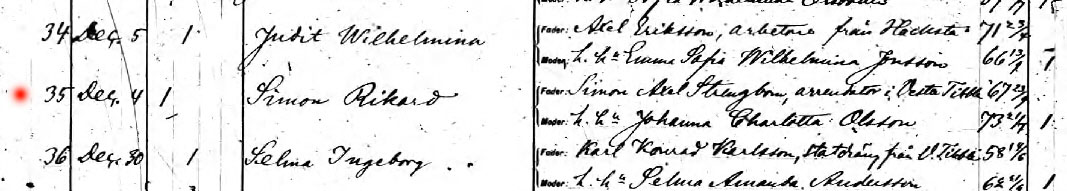 34 Dec. 5 1 Judit Wilhelmina Fader: Axel Eriksson, arbetare från Häcksta 71 23/4
Moder: h. h. Emma Sofia Wilhelmina Jonsson 66 13/9 1
35 Dec. 4 1 Simon Rikard Fader: Simon Axel Strengbom, arrendator i Vesta 67
Moder: h. h. Johanna Charlotta Olsson 73 1
36 Dec. 30 1 Selma Ingeborg Fader: Karl Konrad Karlsson, statdräng från V. 58
Moder: h. h. Selma Amanda Andersson 62 1